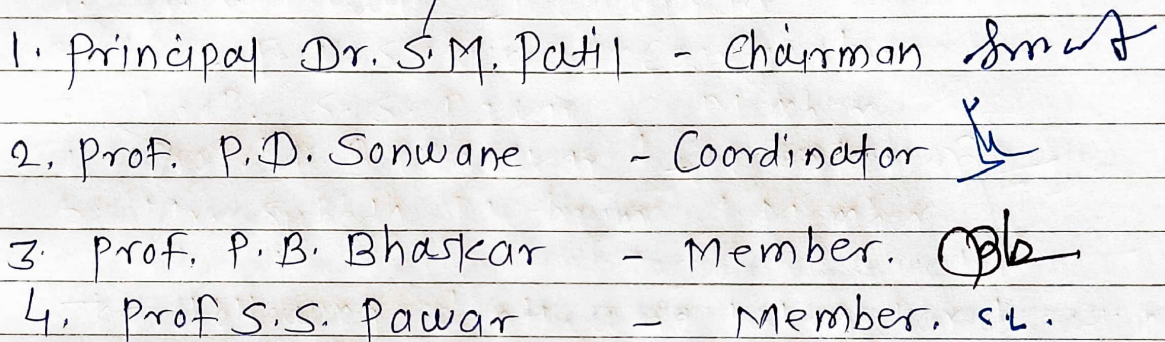 1. Principal Dr. S.M. Patil - Chairman
2. Prof. P.D. Sonwane - Coordinator
3. Prof. P.B. Bhaskar - Member.
4. Prof S.S. Pawar - Member. CL.